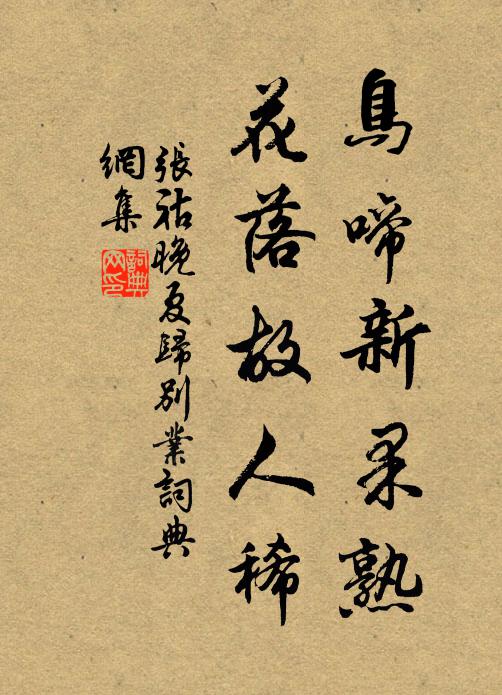 鳥啼新果熟
花落故人稀
張祜晚夏歸別業詞典
網集
詞典網印